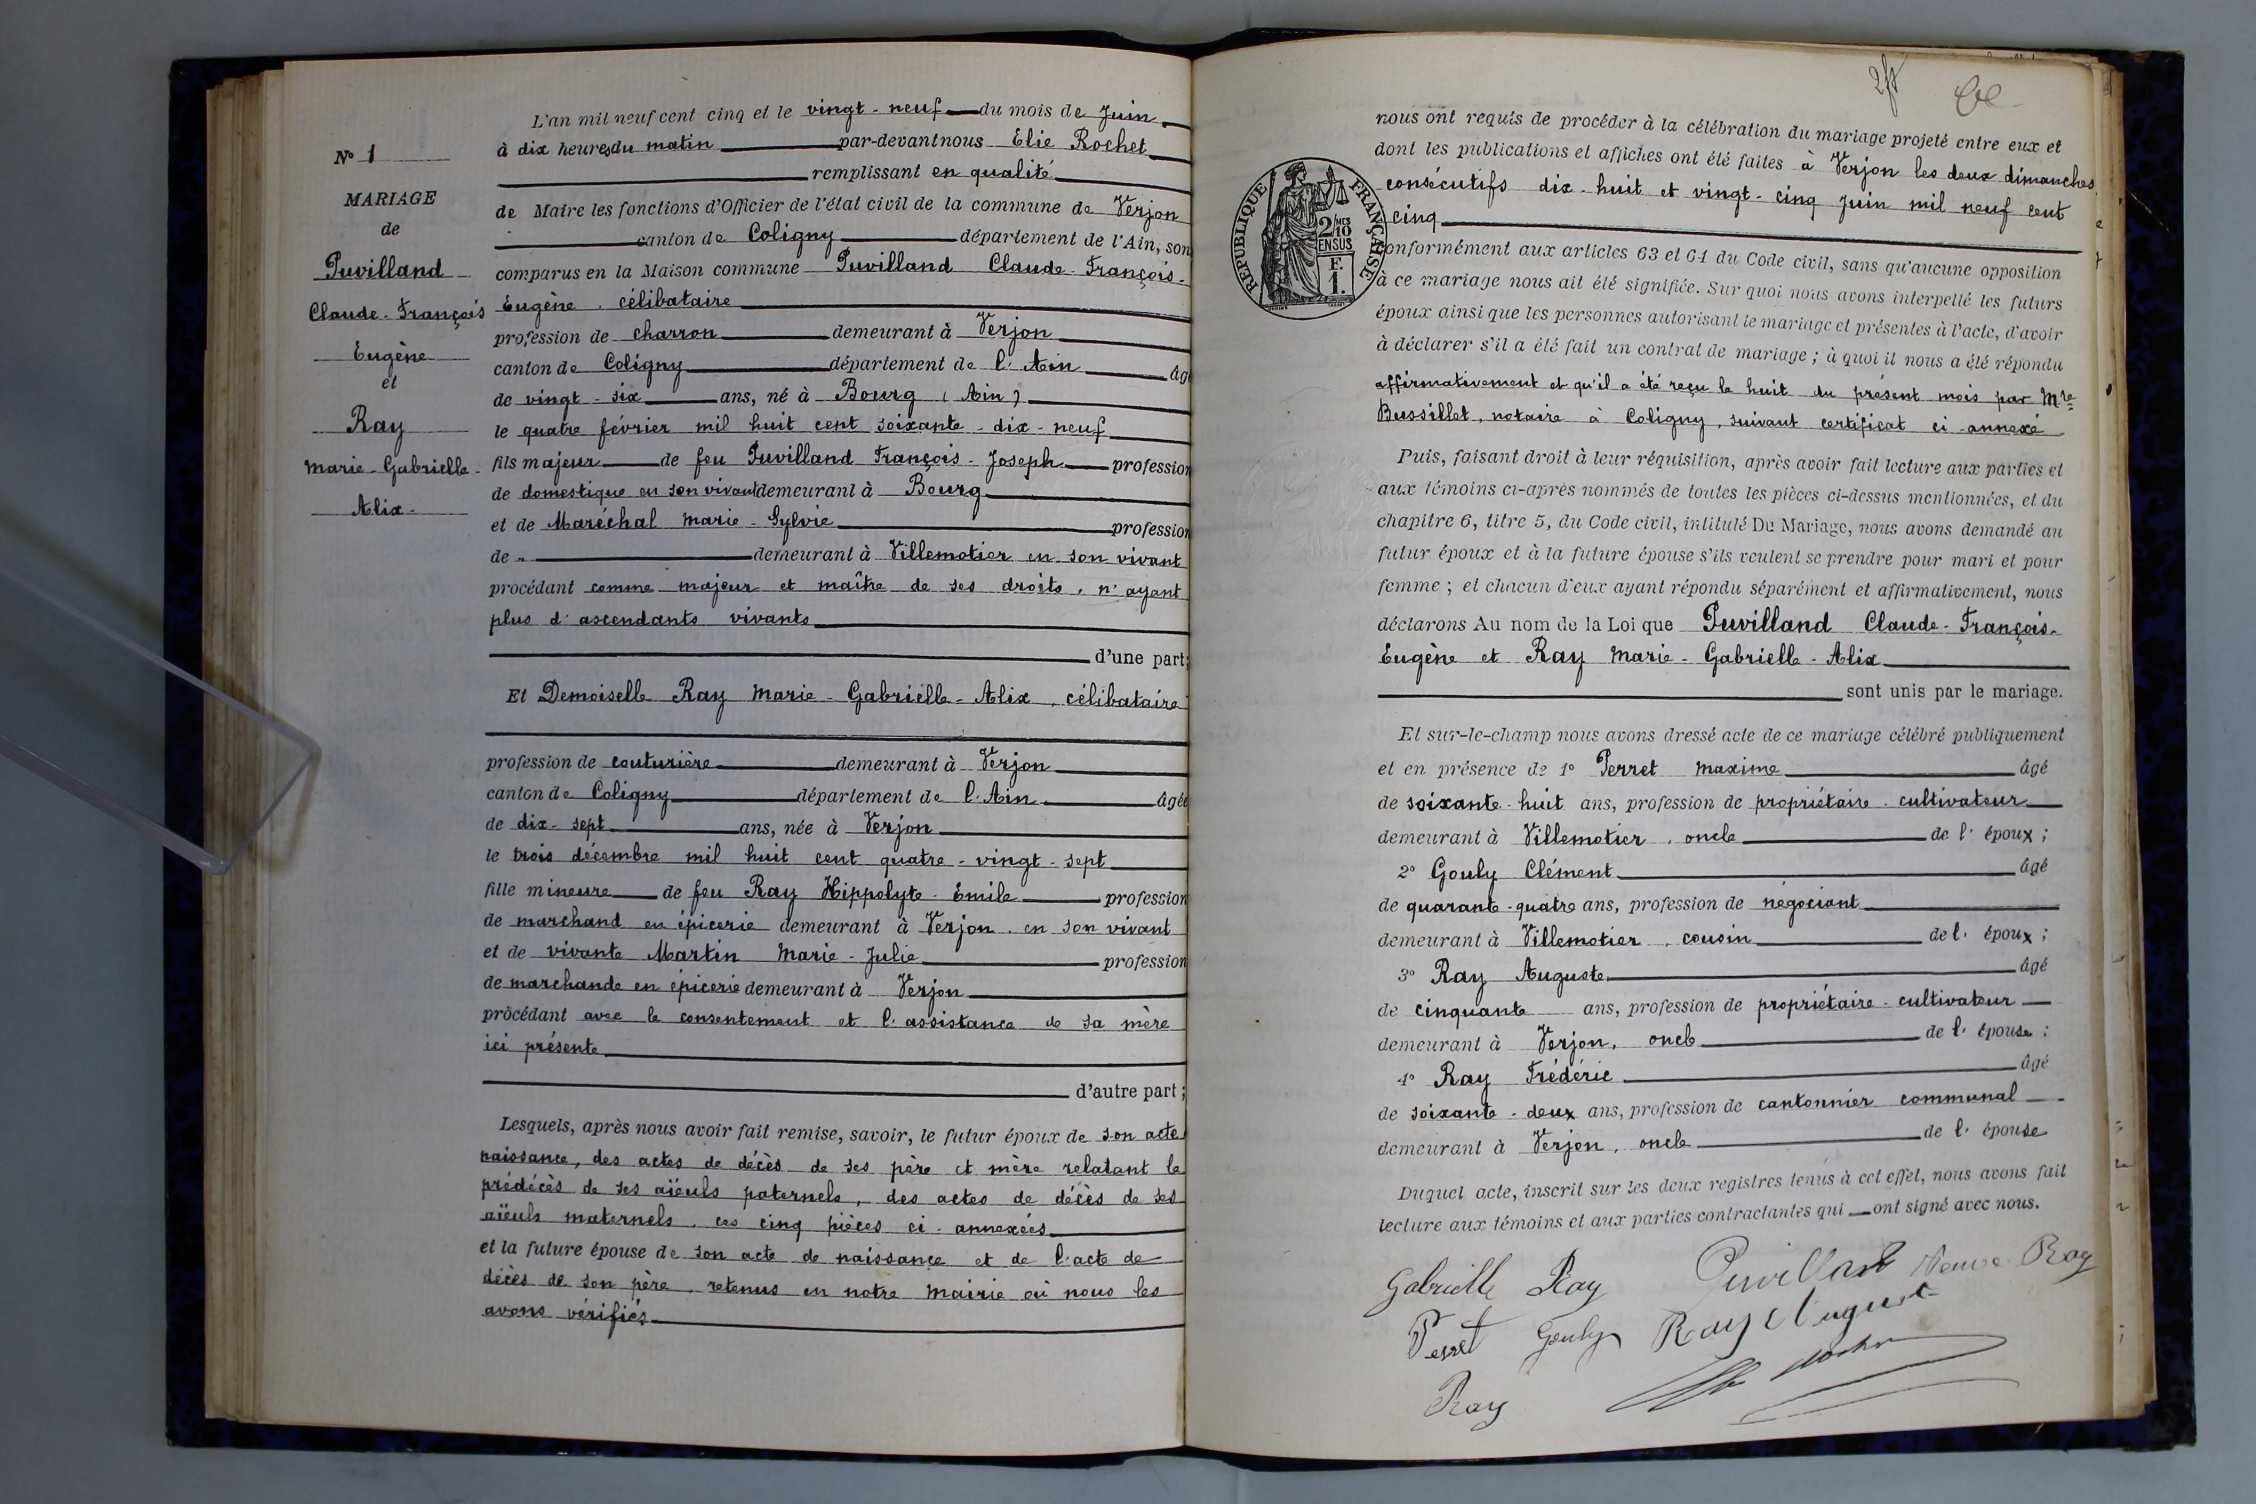 N° 1
MARIAGE
de
Puvilland
Claude-François
Eugène
et
Ray
Marie-Gabrielle-
Alix-
L'an mil neuf cent cinq et le vingt-neuf du mois de Juin
à dix heures du matin par-devant nous Elie Rochet
remplissant en qualité
de Maire les fonctions d'Officier de l'état civil de la commune de Verjon
canton de Coligny département de l'Ain, son
comparus en la Maison commune Puvilland Claude-François-
Eugène, célibataire
profession de charron demeurant à Verjon
canton de Coligny département de l'Ain âg
de vingt-six ans, né à Bourg (Ain)
le quatre février mil huit cent soixante-dix-neuf
fils majeur de feu Puvilland François-Joseph profession
de domestique en son vivant demeurant à Bourg
et de Maréchal Marie-Sylvie profession
de " demeurant à Villemotier en son vivant
procédant comme majeur et maître de ses droits, n'ayant
plus d'ascendants vivants
d'une part;
Et Demoiselle Ray Marie-Gabrielle-Alix, célibataire
profession de couturière demeurant à Verjon
canton de Coligny département de l'Ain âgée
de dix-sept ans, née à Verjon
le trois décembre mil huit cent quatre-vingt-sept
fille mineure de feu Ray Hippolyte-Emile profession
de marchand en épicerie demeurant à Verjon, en son vivant
et de vivante Martin Marie-Julie profession
de marchande en épicerie demeurant à Verjon
procédant avec le consentement et l'assistance de sa mère
ici présente
d'autre part;
Lesquels, après nous avoir fait remise, savoir, le futur époux de son acte
naissance, des actes de décès de ses père et mère relatant le
prédécès de ses aïeuls paternels, des actes de décès de ses
aïeuls maternels, ces cinq pièces ci-annexées
et la future épouse de son acte de naissance et de l'acte de
décès de son père, retenus en notre Mairie où nous les
avons vérifiés
RÉPUBLIQUE FRANÇAISE
2/10
MES
EN SUS
F.
1.
nous ont requis de procéder à la célébration du mariage projeté entre eux et
dont les publications et affiches ont été faites à Verjon les deux dimanches
consécutifs dix-huit et vingt-cinq Juin mil neuf cent
cinq
conformément aux articles 63 et 64 du Code civil, sans qu'aucune opposition
à ce mariage nous ait été signifiée. Sur quoi nous avons interpellé les futurs
époux ainsi que les personnes autorisant le mariage et présentes à l'acte, d'avoir
à déclarer s'il a été fait un contrat de mariage; à quoi il nous a été répondu
affirmativement et qu'il a été reçu le huit du présent mois par Mre
Bussillet, notaire à Coligny, suivant certificat ci-annexé
Puis, faisant droit à leur réquisition, après avoir fait lecture aux parties et
aux témoins ci-après nommés de toutes les pièces ci-dessus mentionnées, et du
chapitre 6, titre 5, du Code civil, intitulé Du Mariage, nous avons demandé au
futur époux et à la future épouse s'ils veulent se prendre pour mari et pour
femme; et chacun d'eux ayant répondu séparément et affirmativement, nous
déclarons Au nom de la Loi que Puvilland Claude-François-
Eugène et Ray Marie-Gabrielle-Alix
sont unis par le mariage.
Et sur-le-champ nous avons dressé acte de ce mariage célébré publiquement
et en présence de 1° Perret Maxime âgé
de soixante-huit ans, profession de propriétaire-cultivateur
demeurant à Villemotier, oncle de l'époux;
2° Gouly Clément âgé
de quarante-quatre ans, profession de négociant
demeurant à Villemotier, cousin de l'époux;
3° Ray Auguste âgé
de cinquante ans, profession de propriétaire-cultivateur
demeurant à Verjon, oncle de l'épouse;
4° Ray Frédéric âgé
de soixante-deux ans, profession de cantonnier communal
demeurant à Verjon, oncle de l'épouse
Duquel acte, inscrit sur les deux registres tenus à cet effet, nous avons fait
lecture aux témoins et aux parties contractantes qui ont signé avec nous.
Gabrielle Ray Puvilland Veuve Ray
Perret Gouly Ray Auguste
Ray